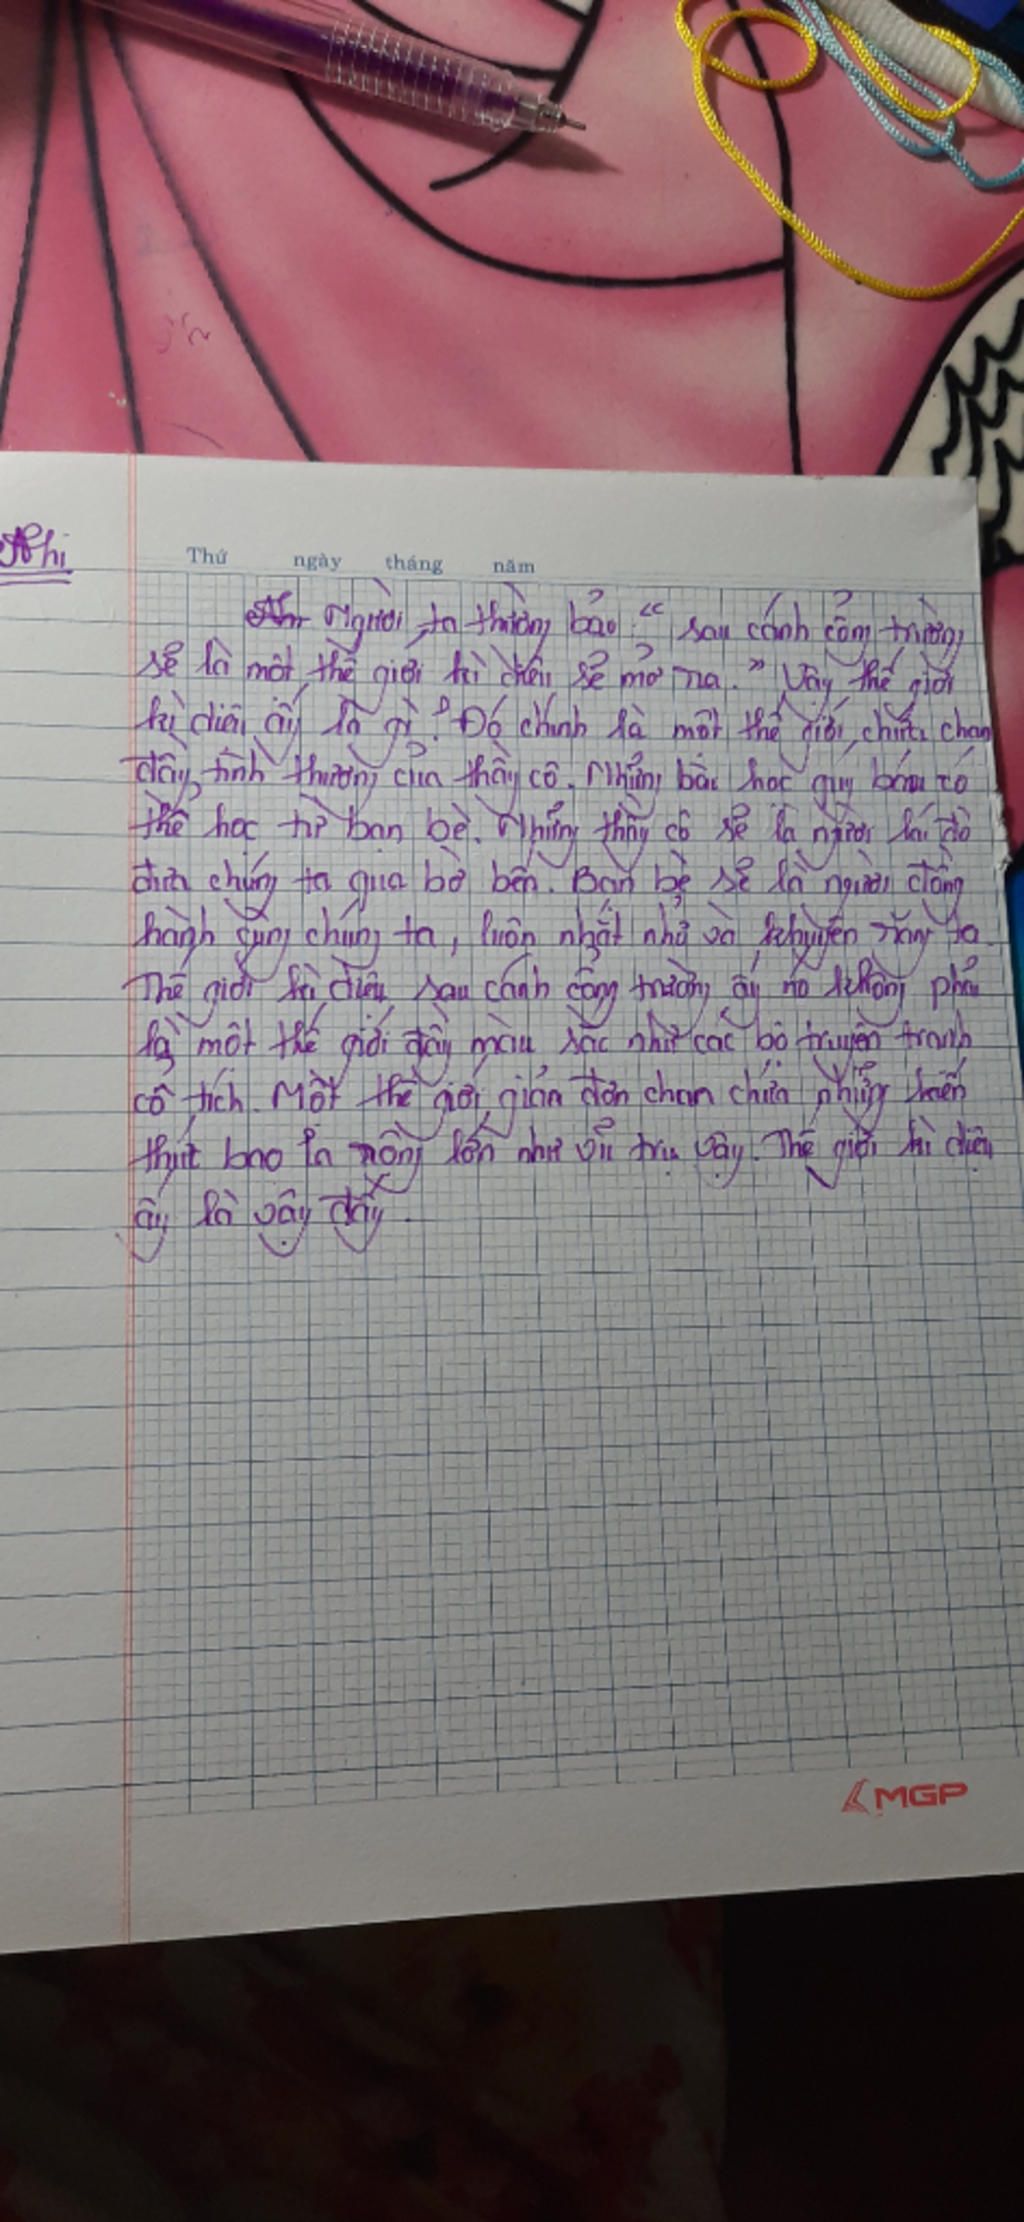 Nhi
Thứ ngày tháng năm
Người ta thường bảo: “ sau cánh cổng trường
sẽ là một thế giới kì diệu sẽ mở ra.” Vậy thế giới
kì diệu ấy là gì? Đó chính là một thế giới chan
đầy tình thương của thầy cô. Những bài học quý báu có
thể học từ bạn bè. Những thầy cô sẽ là người lái đò
đưa chúng ta qua bờ bến. Bạn bè sẽ là người đồng
hành cùng chúng ta, luôn nhắc nhở và khuyên răng ta.
Thế giới kì diệu sau cánh cổng trường ấy nó không phải
là một thế giới đầy màu sắc như các bộ truyện tranh
cổ tích. Một thế giới giản đơn chan chứa những kiến
thức bao la rộng lớn như vũ trụ vậy. Thế giới kì diệu
ấy là vậy đấy.
MGP